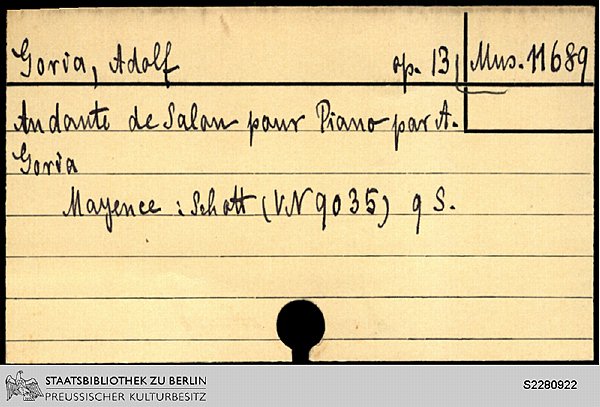 Goria, Adolf op. 13, Mus. 11689
Andante de Salon pour Piano par A.
Goria
Mayence : Schott (VN 9035) 9 S.
STAATSBIBLIOTHEK ZU BERLIN
PREUSSISCHER KULTURBESITZ
S2280922